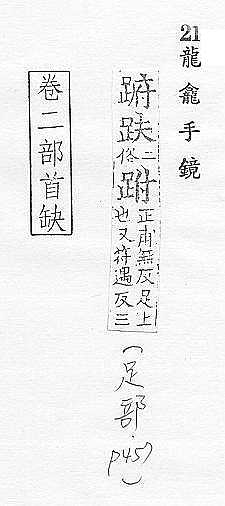 21
龍龕手鏡
趺二俗跗正甫無反足上
也又符遇反三
(足部.p457)
卷二部首缺